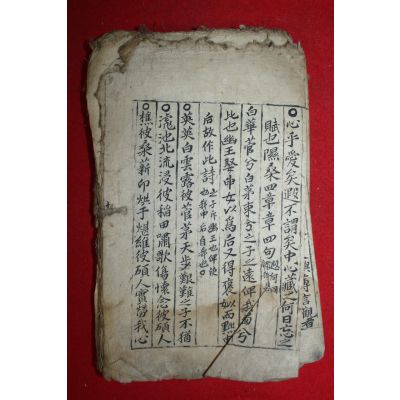 ○心乎愛矣遐不謂矣中心藏之何日忘之
賦也隰桑四章章四句
白華菅兮白茅束兮之子之遠俾我獨兮
比也幽王娶申女以爲后又得褒姒而黜申
后故作此詩
○英英白雲露彼菅茅天步艱難之子不猶
○滮池北流浸彼稻田嘯歌傷懷念彼碩人
○樵彼桑薪卬烘于煁維彼碩人實勞我心